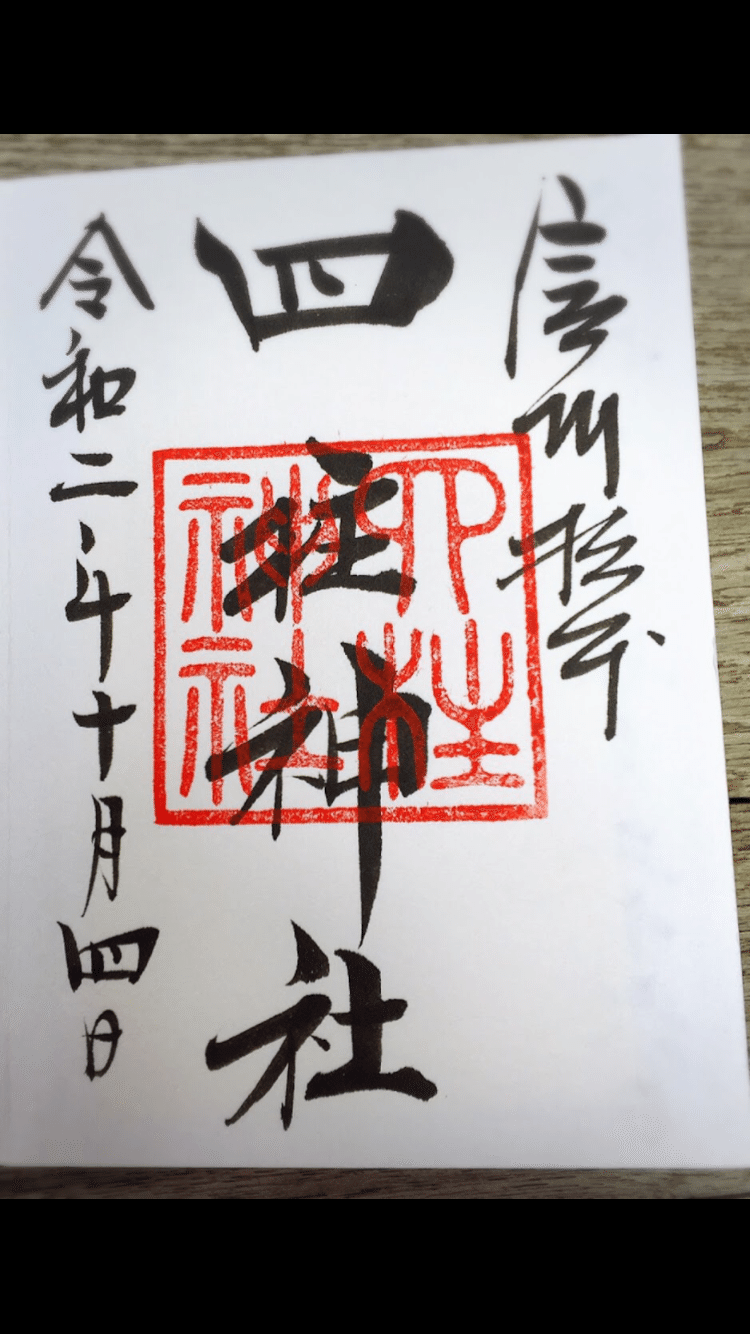 信州松本
四柱神社
四柱
神社
令和二年十月四日